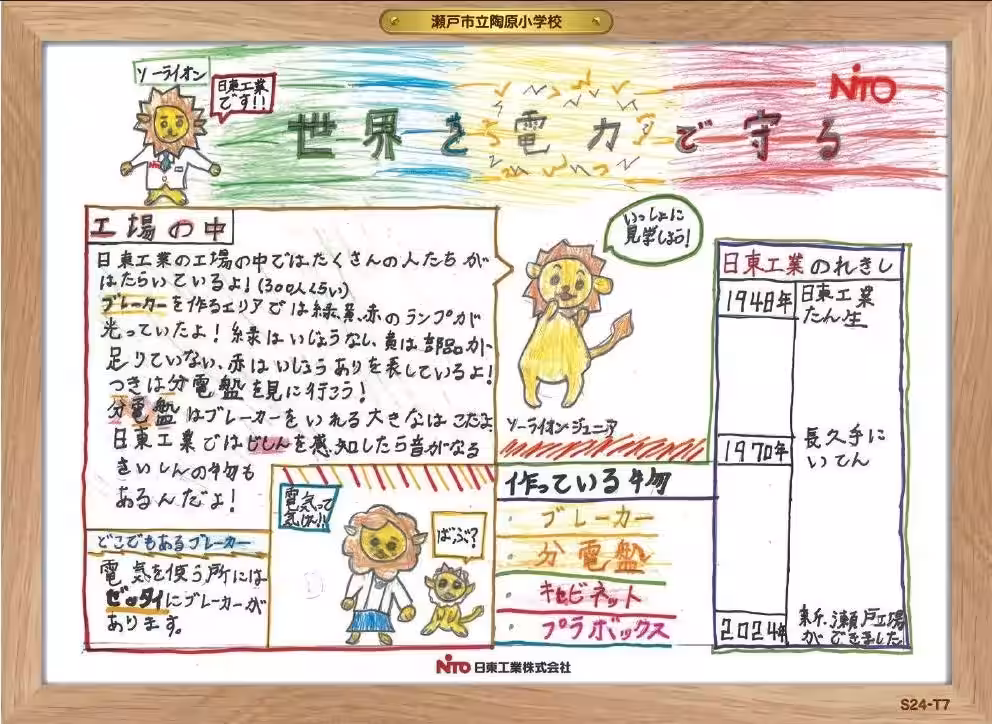 瀬戸市立陶原小学校
ソーライオン
日東工業
です!!
NITO
世界を電力で守る
工場の中
日東工業の工場の中ではたくさんの人たちが
はたらいているよ!(300人くらい)
ブレーカーを作るエリアでは緑、黄、赤のランプが
光っていたよ!緑はいじょうなし、黄は部品が
足りていない、赤はいじょうありを表しているよ!
つぎは分電盤を見に行こう!
分電盤はブレーカーをいれる大きなはこだよ
日東工業ではじしんを感知したら音がなる
さいしんの物も
あるんだよ!
どこでもあるブレーカー
電気を使う所には
ゼッタイにブレーカーが
あります。
電気って
ばぶ?
いっしょに
見学しよう!
ソーライオンジュニア
作っている物
・ブレーカー
・分電盤
・キャビネット
・プラボックス
日東工業のれきし
1948年 日東工業
たん生
1970年 長久手に
いてん
2024年 新、瀬戸工場
ができました
NITO 日東工業株式会社
S24-T7